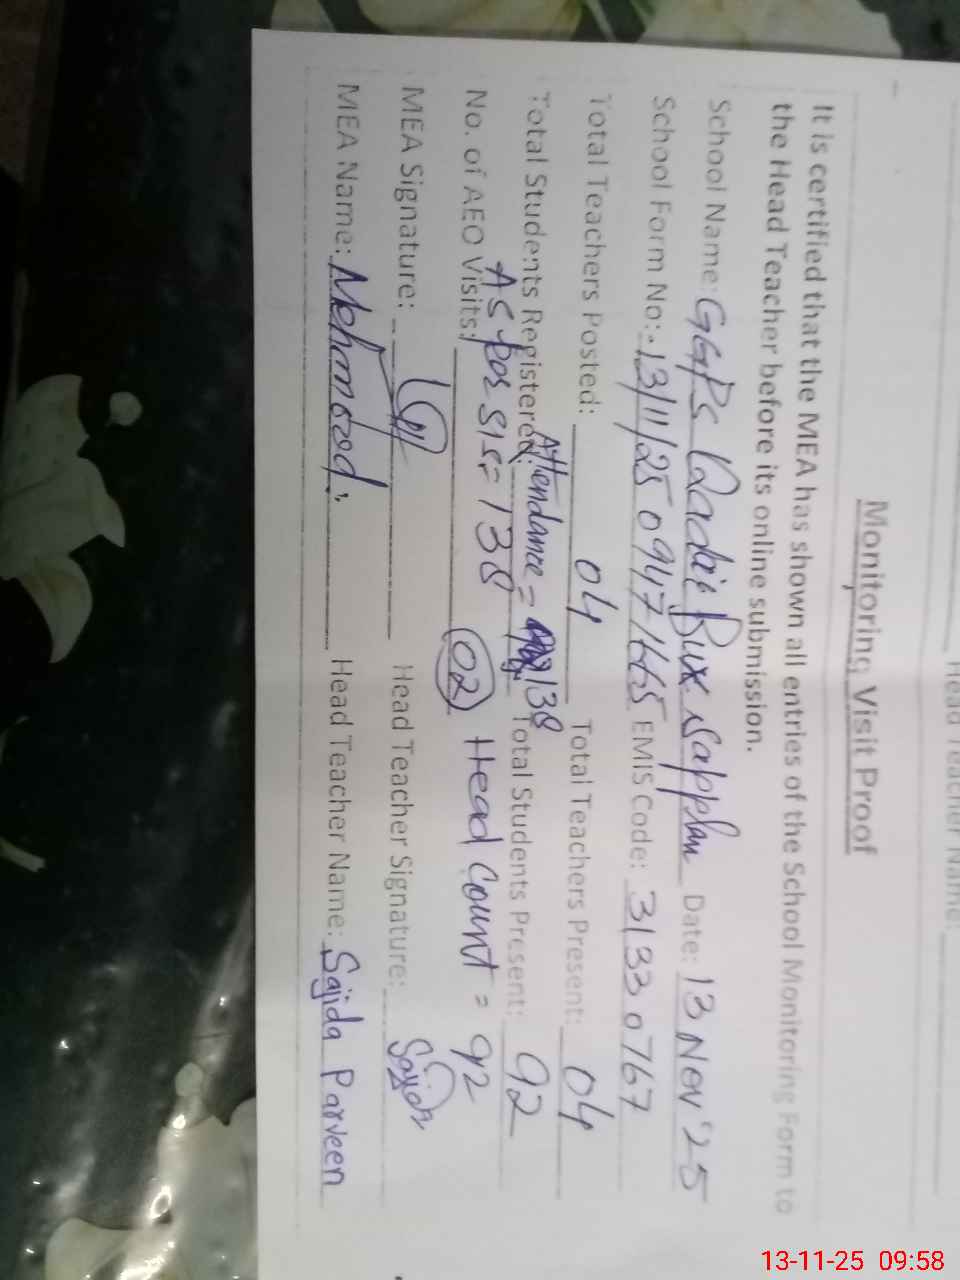 Head Teacher Name:
Monitoring Visit Proof
It is certified that the MEA has shown all entries of the School Monitoring Form to
the Head Teacher before its online submission.
School Name: GGPS Qadir Bux Sapplan Date: 13 Nov '25
School Form No:- 13/11/25 0947 1665 EMIS Code: 31330767
Total Teachers Posted: 04 Total Teachers Present: 04
Attendance = 138
Total Students Registered: Total Students Present: 92
As per SIS = 138
No. of AEO Visits: 02 Head Count = 92
MEA Signature: Head Teacher Signature: Sajida
MEA Name: Mehmood Head Teacher Name: Sajida Parveen
13-11-25 09:58